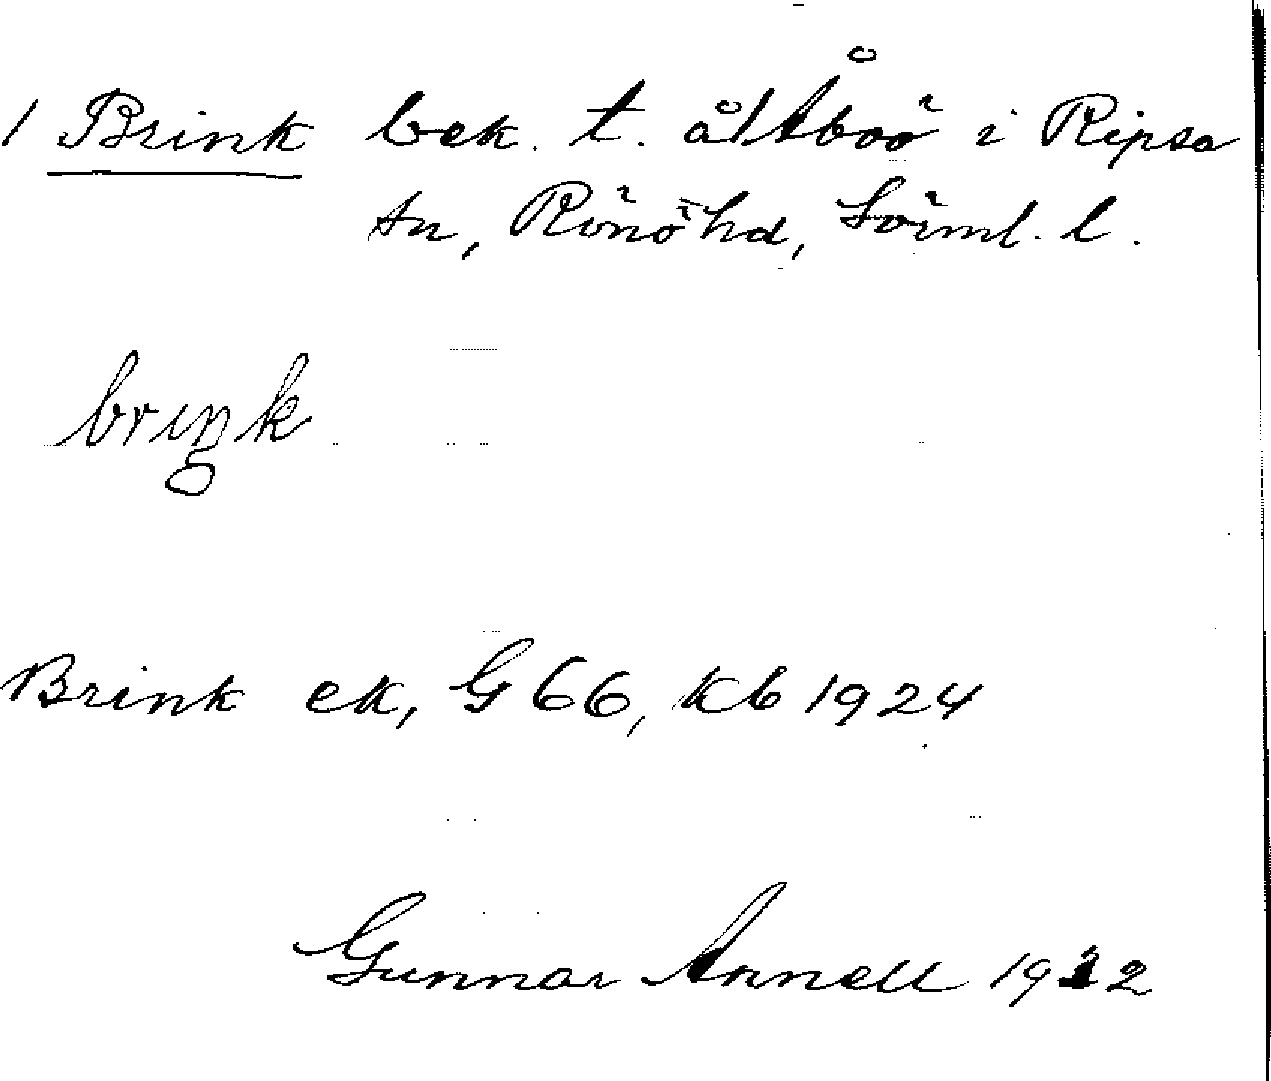 1 Brink bek. t. ål Åboö i Ripsa
sn, Rönö hd, Sörml. l.
briŋk
Brink ek, G 66, kb 1924
Gunnar Annell 1932